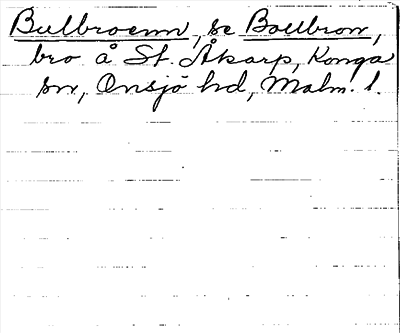 Bulbroenn, se Boelbron,
bro å St. Åkarp, Konga
sn, Onsjö hd, Malm. l.